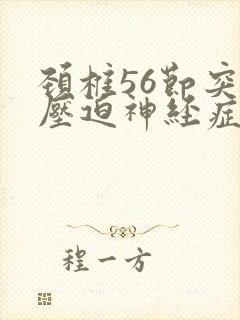 頚柱56節突
壓迫神経症
程一方